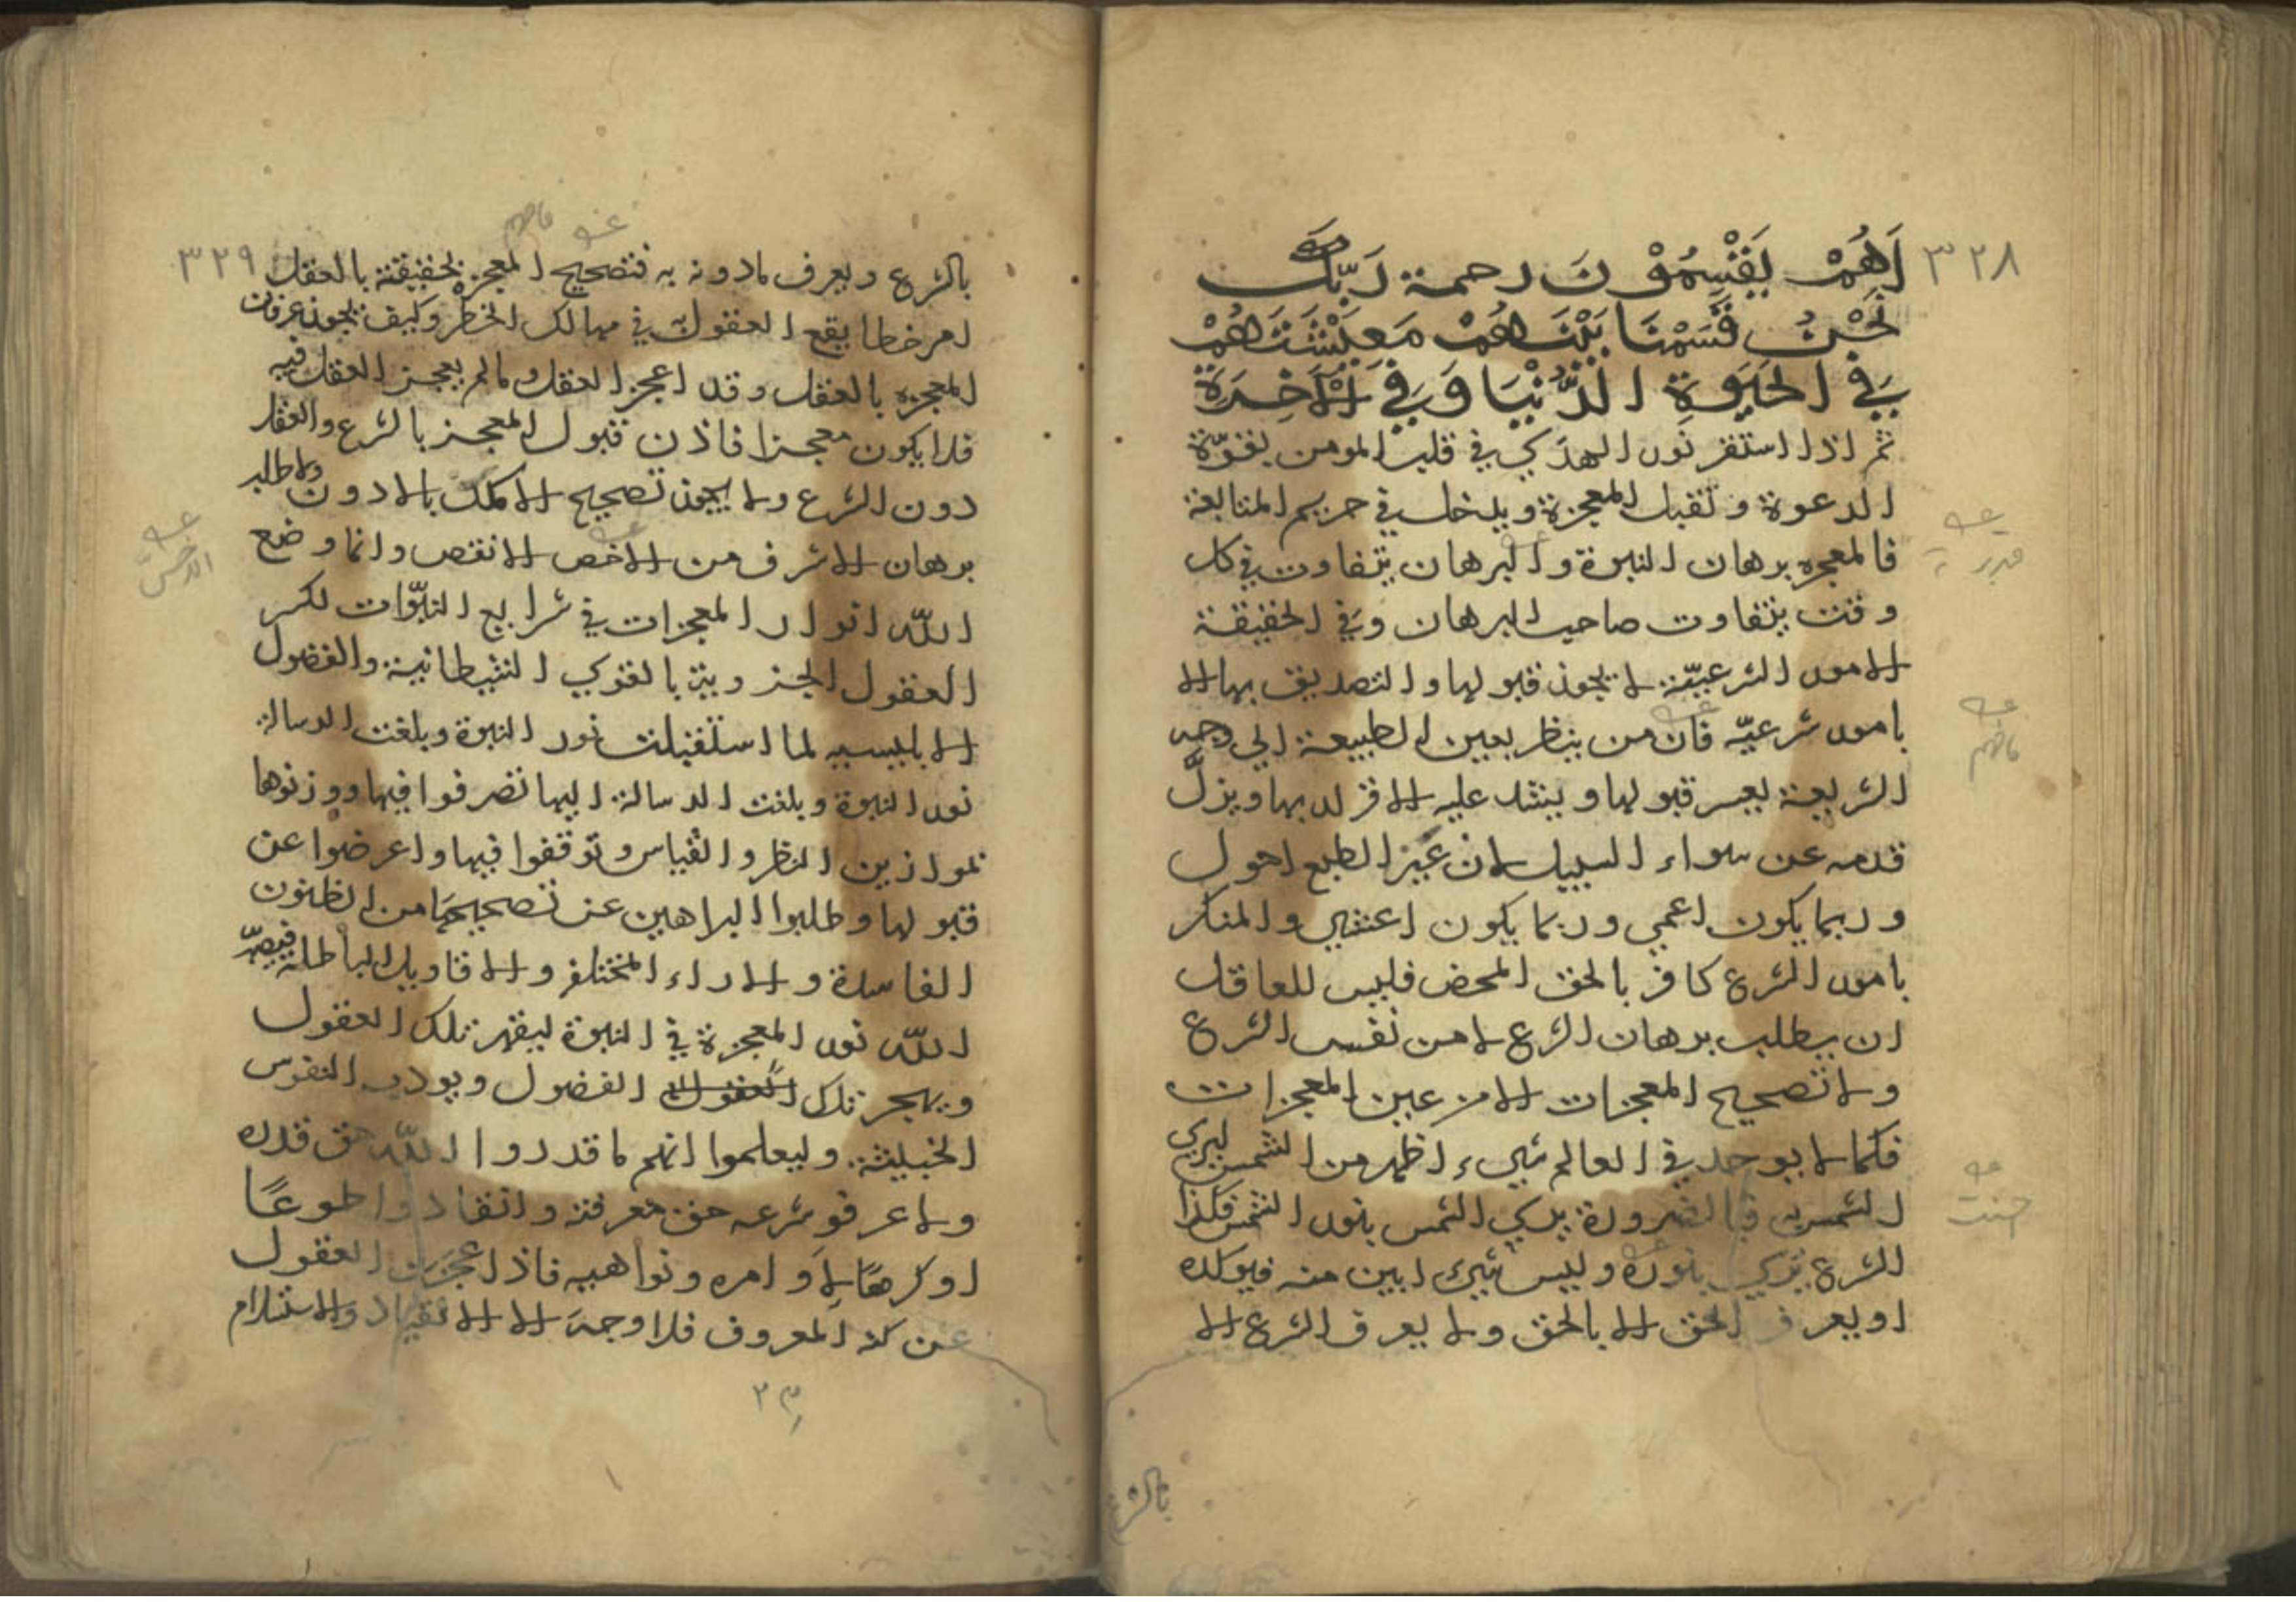 ٣٢٨
اَهُمْ يَقْسِمُوْنَ رحمة رَبِّكَ
نَحْنُ قَسَمْنَا بَيْنَهُمْ مَعِيْشَتَهُمْ
فِي الحَيَوةِ الدُّنْيَا وَفِي الْآخِرَة
ثم اذا استقر نور الهدي في قلب المومن بقوّة
الدعوة وتقبل المعجزة ويدخل في حريم المتابعة
فالمعجزه برهان النبوة والبرهان يتفاوت في كل
وقت بتفاوت صاحب البرهان وفي الحقيقة
الامور الشرعيّة لا يجوز قبولها والتصديق بها الا
بامور شرعيّه فان من ينظر بعين الطبيعة الي وجه
الشريعة يعسر قبولها ويشد عليه الاقرار بها ويزلّ
قدمه عن سواء السبيل لان عين الطبع احول
وربما يكون اعمي وربما يكون اعشي والمنكر
بامور الشرع كافر بالحق المحض فليس للعاقل
ان يطلب برهان الشرع لا من نفس الشرع
ولا تصحيح المعجزات الا من عين المعجزات
فكما لا يوجد في العالم شيء اظهر من الشمس ليري
الشمس به فبالضرورة يري الشمس بنور الشمس فكذا
الشرع يري بنوره وليس شيء ابين منه فيوكده
او يعرف الحق الا بالحق ولا يعرف الشرع الا
بالشرع
٣٢٩
بالشرع ويعرف مادونه به فتصحيح المعجزه الحقيقة بالعقل
امر خطا يقع العقول في مهالك الخطر وكيف يجوز عرفان
المعجزه بالعقل وقد اعجز العقل ومالم يعجز العقل فيه
فلا يكون معجزا فاذن قبول المعجز بالشرع والعقل
دون الشرع ولا يجوز تصحيح الاكمل بالادون ولا طلب
برهان الاشرف من الاخص الانقص وانما وضع
الله انوار المعجزات في شرايع النبوّات لكسر
العقول الجزوية بالقوي الشيطانية والفضول
الابليسيه لما استقبلت نور النبوة وبلغت الرسالة
نور النبوة وبلغت الرسالة اليها تصرفوا فيها ووزنوها
بموازين النظر والقياس وتوقفوا فيها واعرضوا عن
قبولها وطلبوا البراهين عن تصحيحها من الظنون
الفاسدة والاراء المختلفه والاقاويل الباطلة فيصيّر
الله نور المعجزة في النبوة ليقهر تلك العقول
ويهجر تلك العقول الفضول ويودب النفوس
الخبيثة وليعلموا انهم ما قدروا الله حق قدره
ولا عرفو شرعه حق معرفته وانقادوا طوعًا
او كرهًا لاوامره ونواهيه فاذا عجزت العقول
عن كنه المعروف فلا وجه الا الانقياد والاستلام